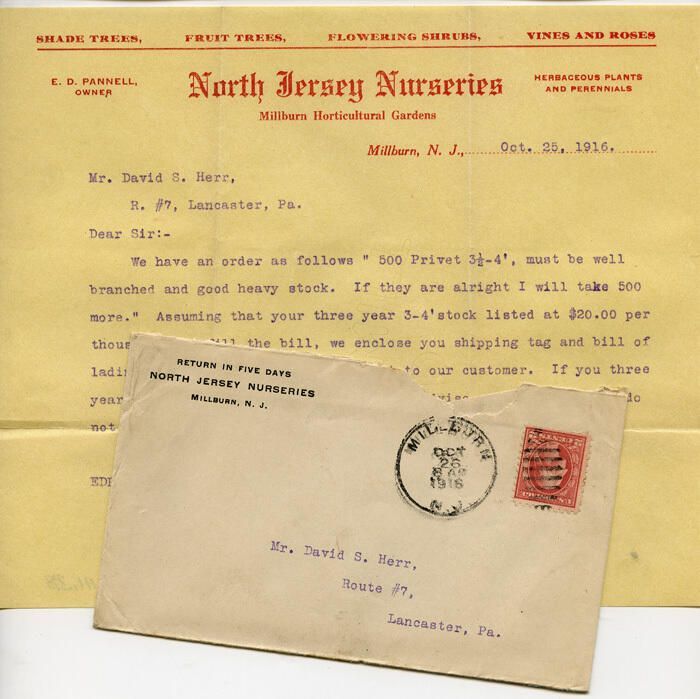 SHADE TREES, FRUIT TREES, FLOWERING SHRUBS, VINES AND ROSES
E. D. PANNELL,
OWNER
North Jersey Nurseries
HERBACEOUS PLANTS
AND PERENNIALS
Millburn Horticultural Gardens
Millburn, N. J., Oct. 25, 1916.
Mr. David S. Herr,
R. #7, Lancaster, Pa.
Dear Sir:-
We have an order as follows " 500 Privet 3½-4', must be well
branched and good heavy stock. If they are alright I will take 500
more." Assuming that your three year 3-4'stock listed at $20.00 per
the bill, we enclose you shipping tag and bill of
to our customer. If you three
year do
not
RETURN IN FIVE DAYS
NORTH JERSEY NURSERIES
MILLBURN, N. J.
MILLBURN
OCT
26
1916
N.J.
Mr. David S. Herr,
Route #7,
Lancaster, Pa.